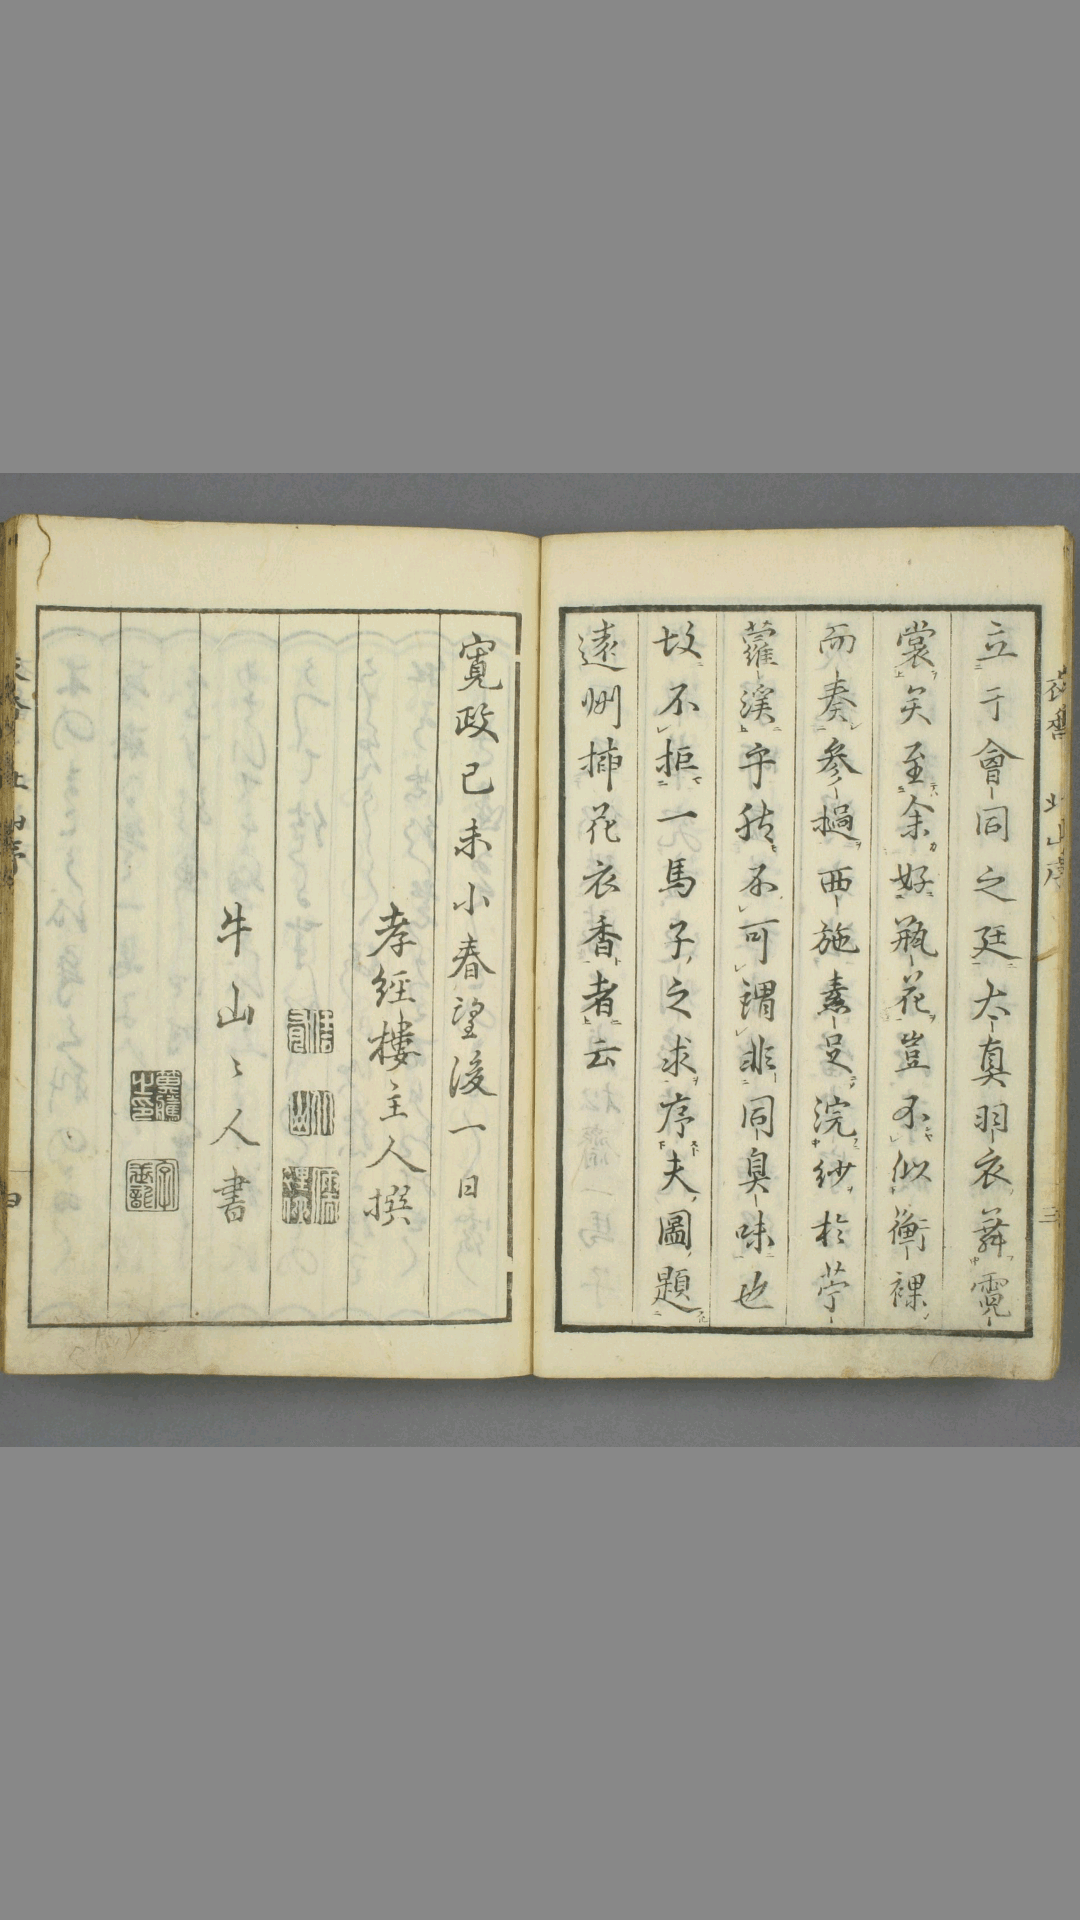 立于會同之廷太真羽衣舞霓
裳矣至余好瓶花豈不似衡裸
而奏參撾西施素足浣紗於苧
蘿溪乎然不可謂非同臭味也
故不拒一馬子之求序夫圖題
遠州挿花衣香者云
寛政己未小春望後一日
孝經樓主人撰
牛山〻人書